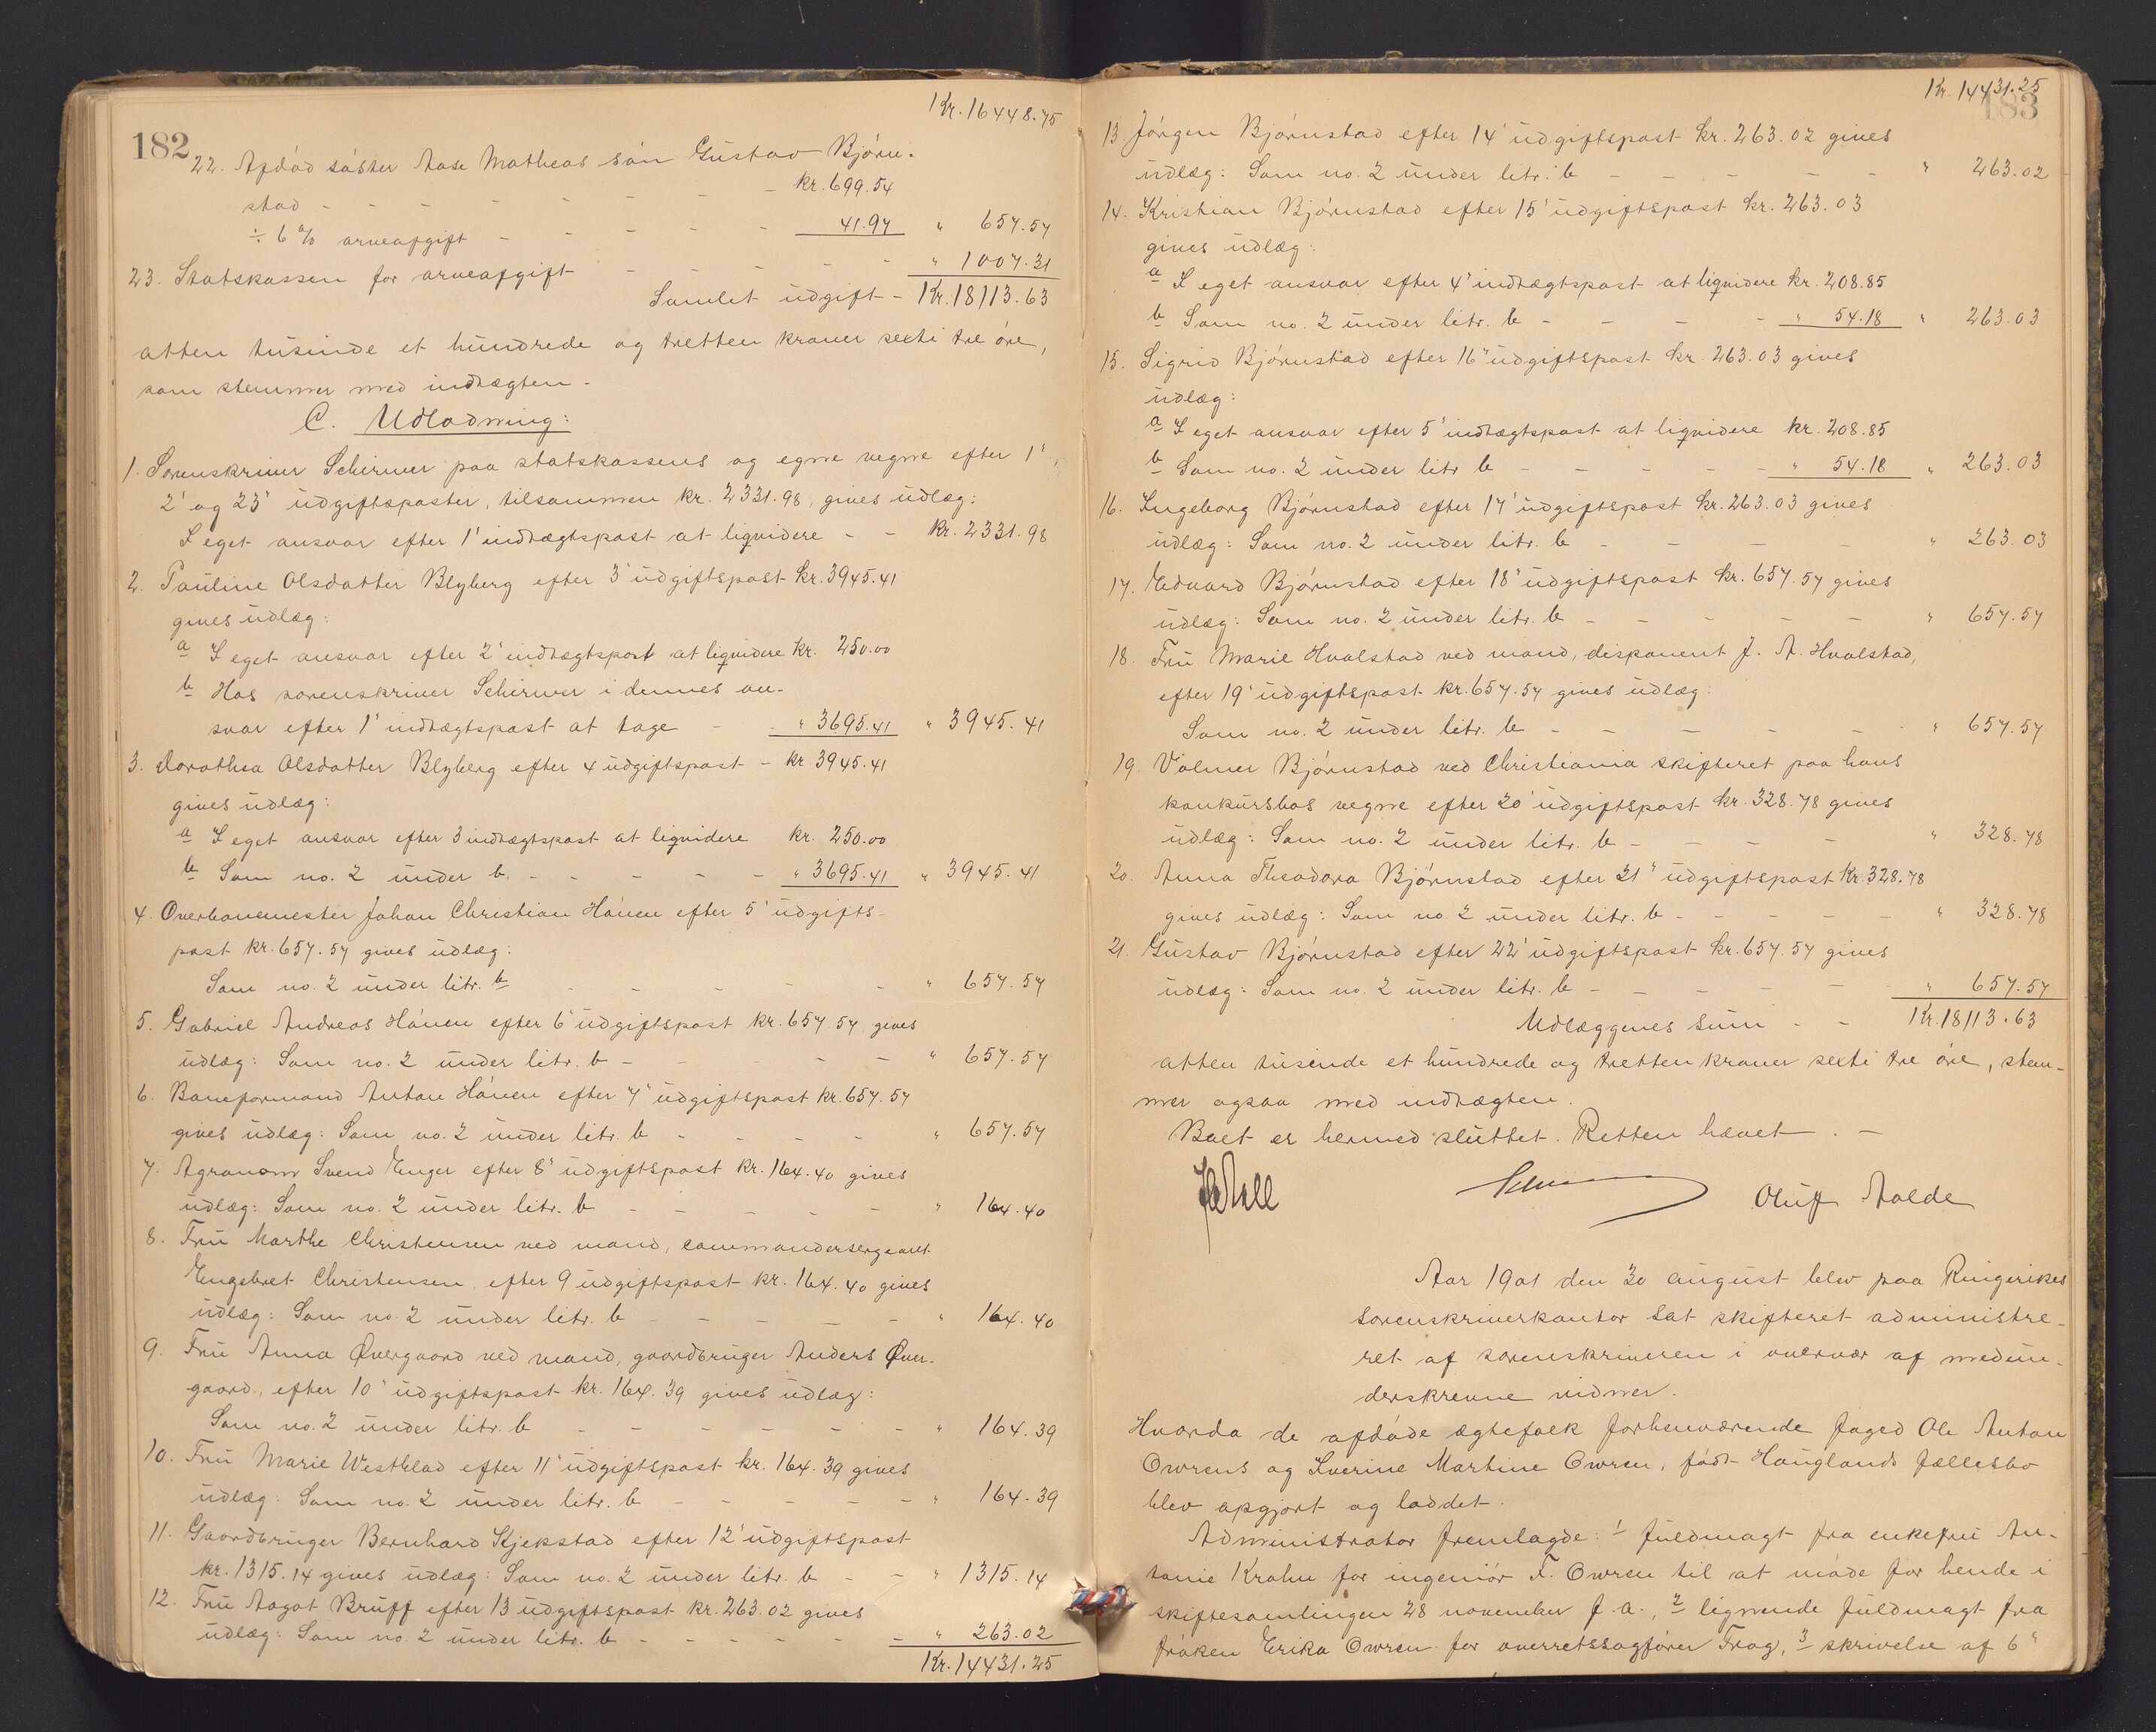 182
Kr. 16448.75
22. Afdød søster Aase Matheas søn Gustav Bjørn-
stad - - - - - - - kr. 699.54
÷ 6 % arveafgift - - - - - 41.97 " 657.57
23. Statskassen for arveafgift - - - - - " 1007.31
Samlet udgift - Kr. 18113.63
atten tusinde et hundrede og tretten kroner sexti tre øre,
som stemmer med indtægten.
C. Udlodning:
1. Sorenskriver Schirmer paa statskassens og egne vegne efter 1',
2' og 23' udgiftsposter, tilsammen kr. 2331.98, gives udlæg:
I eget ansvar efter 1' indtægtspost at liqvidere - - Kr. 2331.98
2. Pauline Olsdatter Blyberg efter 3' udgiftspost kr. 3945.41
gives udlæg:
a I eget ansvar efter 2' indtægtspost at liqvidere Kr. 250.00
b Hos sorenskriver Schirmer i dennes an-
svar efter 1' indtægtspost at tage - " 3695.41 " 3945.41
3. Dorothea Olsdatter Blyberg efter 4 udgiftspost - kr 3945.41
gives udlæg:
a I eget ansvar efter 3 indtægtspost at liqvidere kr. 250.00
b Som no. 2 under b. - - - - - " 3695.41 " 3945.41
4. Overbanemester Johan Christian Hónen efter 5' udgifts-
post kr. 657.57 gives udlæg:
Som no. 2 under litr. b - - - - - " 657.57
5. Gabriel Andreas Hónen efter 6' udgiftspost kr. 657.57 gives
udlæg: Som no. 2 under litr. b - - - - " 657.57
6. Baneformand Anton Hónen efter 7" udgiftspost kr. 657.57
gives udlæg: Som no. 2 under litr. b - - - - " 657.57
7. Agronom Svend Enger efter 8' udgiftspost kr. 164.40 gives
udlæg: Som no. 2 under litr. b - - - - - " 164.40
8. Fru Marthe Christensen ved mand, commandersergeant
Engebret Christensen efter 9 udgiftspost kr. 164.40 gives
udlæg: Som no. 2 under litr. b - - - - - " 164.40
9. Fru Anna Øvergaard ved mand, gaardbruger Anders Øver-
gaard, efter 10' udgiftspost kr. 164.39 gives udlæg:
Som no. 2 under litr. b - - - - - - " 164.39
10. Fru Marie Westblad efter 11' udgiftspost kr. 164.39 gives
udlæg: Som no. 2 under litr. b - - - - - " 164.39
11. Gaardbruger Bernhard Kjekstad efter 12' udgiftspost
kr. 1315.14 gives udlæg: Som no. 2 under litr. b - - " 1315.14
12. Fru Aagot Bruff efter 13 udgiftspost kr. 263.02 gives
udlæg: Som no. 2 under litr. b - - - - - - " 263.02
Kr. 14431.25
Kr. 14431.25
183
13. Jörgen Bjørnstad efter 14' udgiftspost kr. 263.02 gives
udlæg: Som no. 2 under litr. b - - - - - " 263.02
14. Kristian Bjørnstad efter 15' udgiftspost kr. 263.03
gives udlæg:
a I eget ansvar efter 4' indtægtspost at liqvidere kr. 208.85
b Som no. 2 under litr. b - - - - " 54.18 " 263.03
15. Sigrid Bjørnstad efter 16" udgiftspost kr. 263.03 gives
udlæg:
a I eget ansvar efter 5' indtægtspost at liqvidere kr. 208.85
b Som no. 2 under litr b - - - - - " 54.18 " 263.03
16. Ingeborg Bjørnstad efter 17' udgiftspost kr. 263.03 gives
udlæg: Som no. 2 under litr. b - - - - " 263.03
17. Edvard Bjørnstad efter 18' udgiftspost kr. 657.57 gives
udlæg: Som no. 2 under litr. b - - - - - " 657.57
18. Fru Marie Hvalstad ved mand, disponent J. A. Hvalstad,
efter 19' udgiftspost kr. 657.57 gives udlæg:
Som no. 2 under litr. b - - - - - - " 657.57
19. Volmer Bjørnstad ved Christiania skifteret paa hans
konkursbos vegne efter 20' udgiftspost kr. 328.78 gives
udlæg: Som no. 2 under litr. b - - - - " 328.78
20. Anna Theodora Bjørnstad efter 21" udgiftspost Kr. 328.78
gives udlæg: Som no. 2 under litr. b - - - - - " 328.78
21. Gustav Bjørnstad efter 22' udgiftspost kr. 657.57 gives
udlæg: Som no. 2 under litr. b - - - - - " 657.57
Udlæggenes sum - - Kr. 18113.63
atten tusende et hundrede og tretten kroner sexti tre øre, stem-
mer ogsaa med indtægten.
Boet er hermed sluttet. Retten hævet. -
Oluf Aalde
Aar 1901 den 30 august blev paa Ringerikes
sorenskriverkontor sat skifteret administre-
ret af sorenskriveren i overvær af medun-
derskrevne vidner.
Hvorda de afdøde ægtefolk forhenværende foged Ole Anton
Owrens og Severine Martine Owren, født Hauglands fællesbo
blev opgjort og loddet.
Administrator fremlagde: 1 fuldmagt fra enkefru An-
tonie Krohn for ingeniør F. Owren til at møde for hende i
skiftesamlingen 28 november f. a., 2 lignende fuldmagt fra
frøken Erika Owren for overretssagfører Frog, 3 skrivelse af 6"